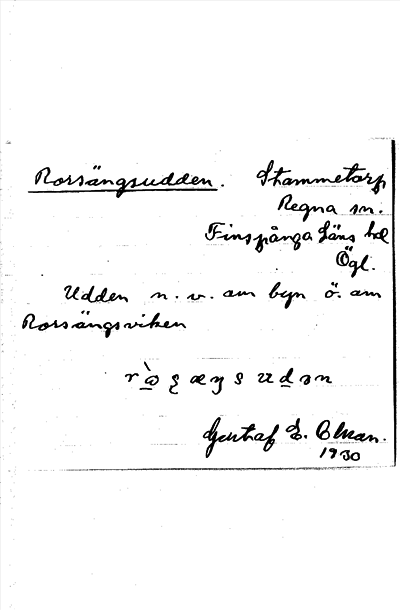 Rorsängsudden. Stammetorp
Regna sn.
Finspånga läns hd
Ögl.
Udden n. v. om byn ö. om
Rorsängsviken
Gustaf E.
1930